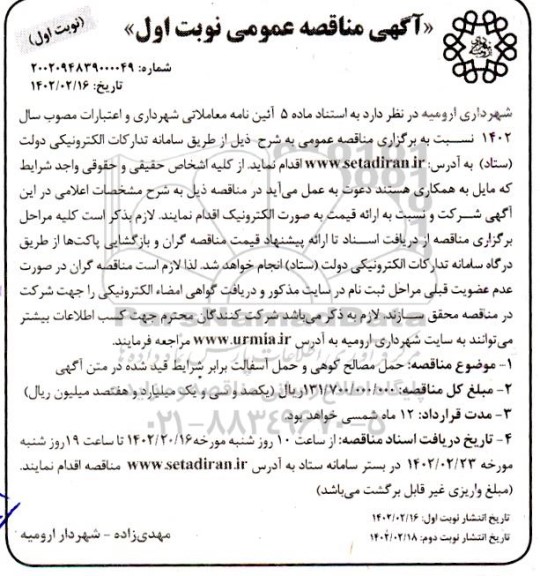 «آگهی مناقصه عمومی نوبت اول»
(نوبت اول)
شماره: ۲۰۰۲۰۹۴۸۳۹۰۰۰۰۴۹
تاریخ: ۱۴۰۲/۰۲/۱۶
شهرداری ارومیه در نظر دارد به استناد ماده ۵ آئین نامه معاملاتی شهرداری و اعتبارات مصوب سال
۱۴۰۲ نسبت به برگزاری مناقصه عمومی به شرح ذیل از طریق سامانه تدارکات الکترونیکی دولت
(ستاد) به آدرس: www.setadiran.ir اقدام نماید. از کلیه اشخاص حقیقی و حقوقی واجد شرایط
که مایل به همکاری هستند دعوت به عمل می‌آید در مناقصه ذیل به شرح مشخصات اعلامی در این
آگهی شرکت و نسبت به ارائه قیمت به صورت الکترونیک اقدام نمایند. لازم بذکر است کلیه مراحل
برگزاری مناقصه از دریافت اسناد تا ارائه پیشنهاد قیمت مناقصه گران و بازگشایی پاکت‌ها از طریق
درگاه سامانه تدارکات الکترونیکی دولت (ستاد) انجام خواهد شد. لذا لازم است مناقصه گران در صورت
عدم عضویت قبلی مراحل ثبت نام در سایت مذکور و دریافت گواهی امضاء الکترونیکی را جهت شرکت
در مناقصه محقق سازند. لازم به ذکر می‌باشد شرکت کنندگان محترم جهت کسب اطلاعات بیشتر
می‌توانند به سایت شهرداری ارومیه به آدرس www.urmia.ir مراجعه فرمایند.
۱- موضوع مناقصه: حمل مصالح کوهی و حمل آسفالت برابر شرایط قید شده در متن آگهی
۲- مبلغ کل مناقصه: ۱۳۱/۷۰۰/۰۰۰/۰۰۰ریال (یکصد و سی و یک میلیارد و هفتصد میلیون ریال)
۳- مدت قرارداد: ۱۲ ماه شمسی خواهد بود.
۴- تاریخ دریافت اسناد مناقصه: از ساعت ۱۰ روز شنبه مورخه ۱۴۰۲/۲۰/۱۶ تا ساعت ۱۹ روز شنبه
مورخه ۱۴۰۲/۰۲/۲۳ در بستر سامانه ستاد به آدرس www.setadiran.ir مناقصه اقدام نمایند.
(مبلغ واریزی غیر قابل برگشت می‌باشد)
تاریخ انتشار نوبت اول: ۱۴۰۲/۰۲/۱۶
تاریخ انتشار نوبت دوم: ۱۴۰۲/۰۲/۱۸
مهدی‌زاده - شهردار ارومیه
۰۲۱-۸۸۳۴۹۶۷۰-۵